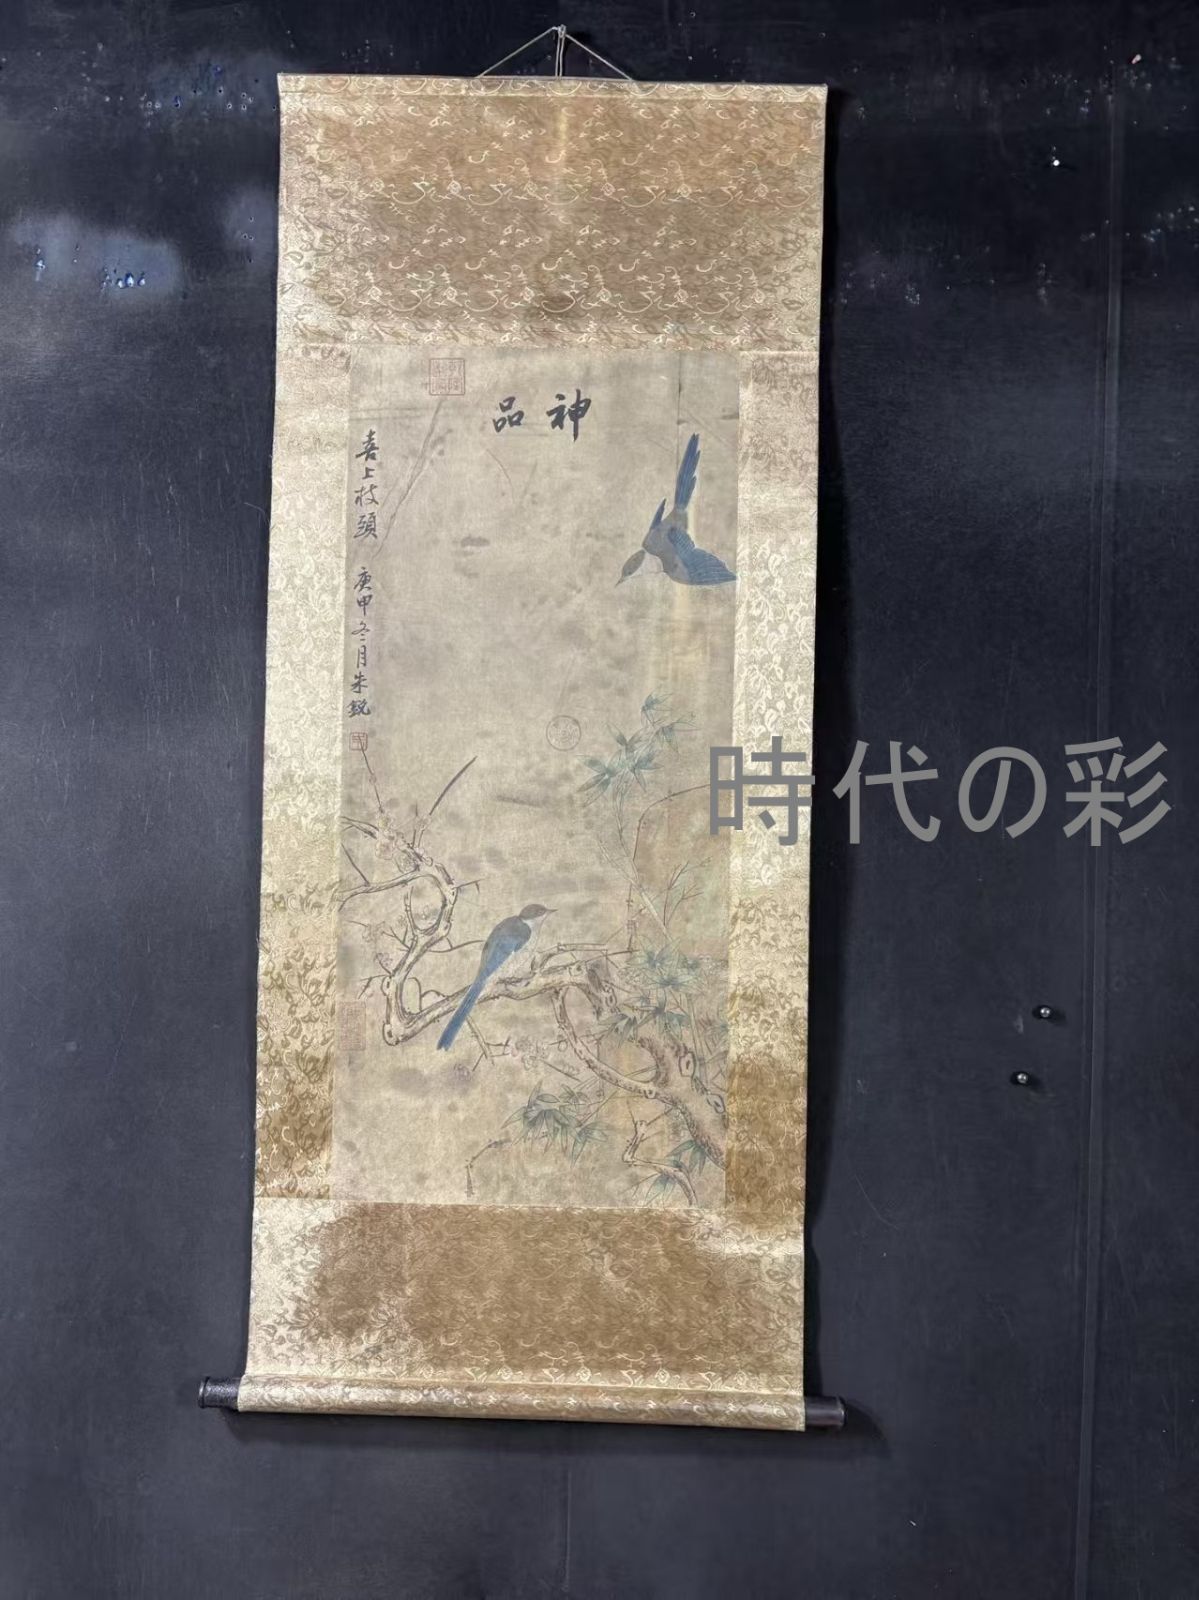 神品
喜上枝頭 庚甲冬月朱銳
時代の彩